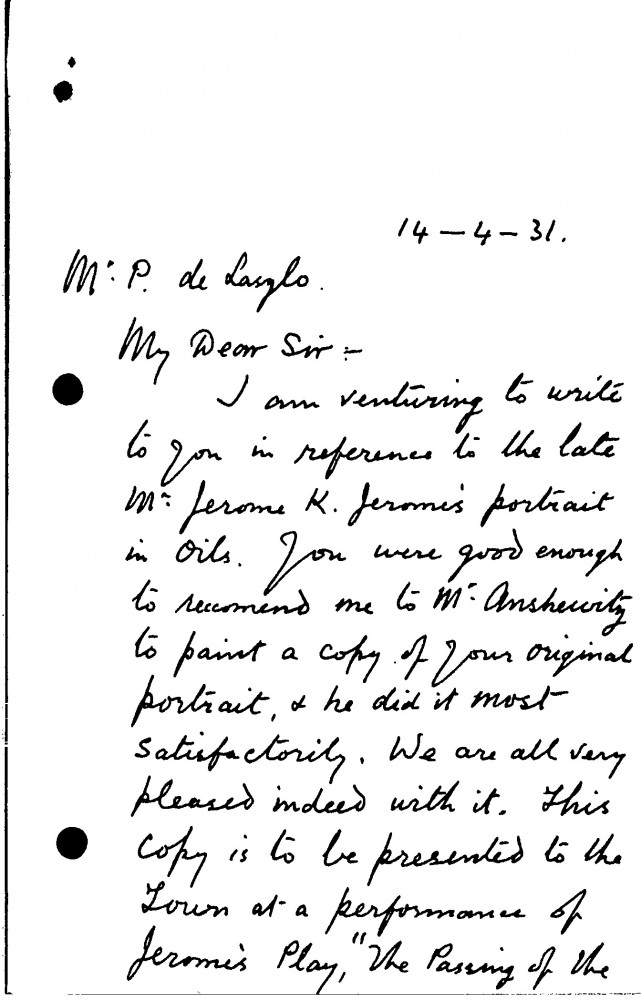 14 – 4 – 31.
Mr. P. de Laszlo.
My Dear Sir :-
I am venturing to write
to you in reference to the late
Mr. Jerome K. Jerome's portrait
in Oils. You were good enough
to recomend me to Mr. Anshewitz
to paint a copy of your original
portrait, & he did it most
satisfactorily. We are all very
pleased indeed with it. This
copy is to be presented to the
Town at a performance of
Jerome's Play, "The Passing of the